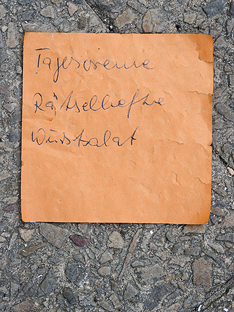 Tagescreme
Rätselhefte
Wurstsalat